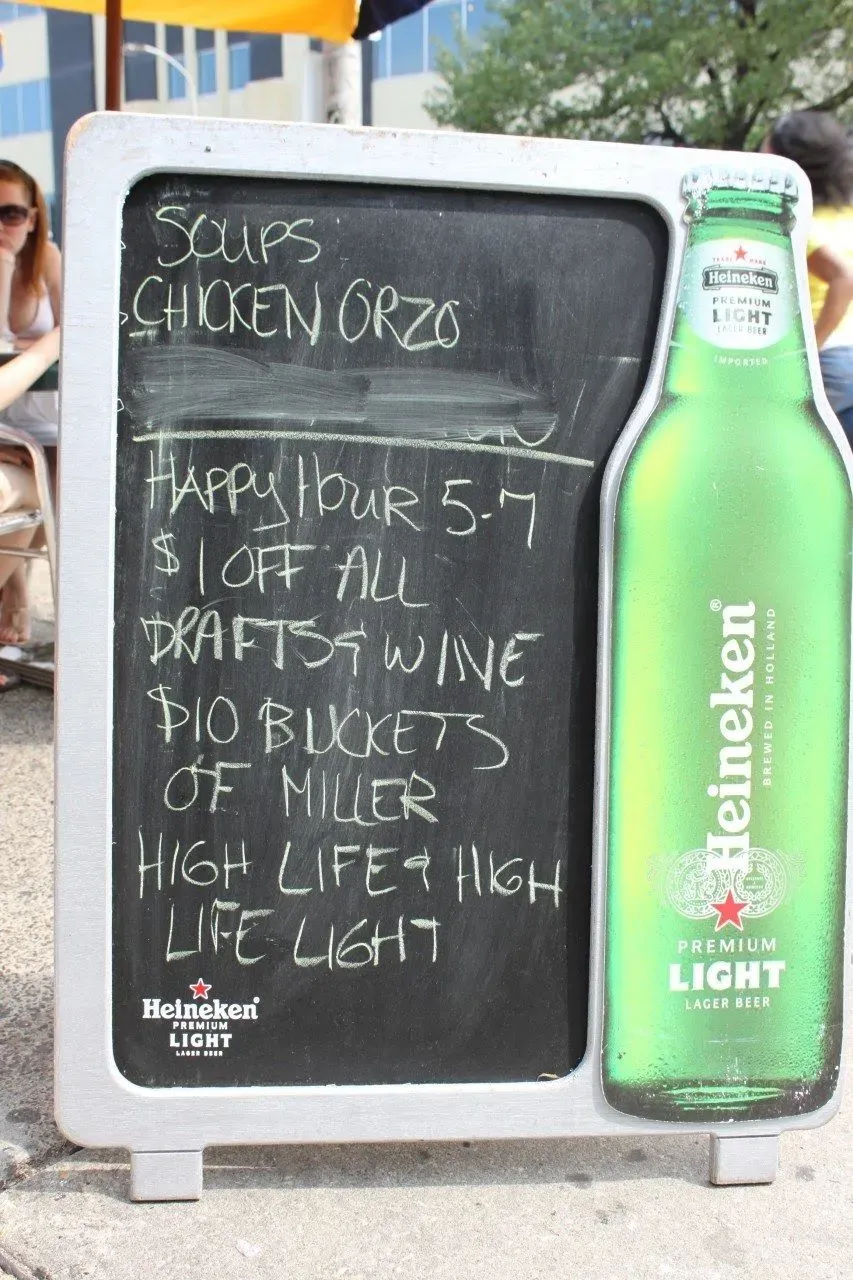 SOUPS
CHICKEN ORZO
HAPPY HOUR 5-7
$1 OFF ALL
DRAFTS & WINE
$10 BUCKETS
OF MILLER
HIGH LIFE & HIGH
LIFE LIGHT
Heineken
PREMIUM
LIGHT
LAGER BEER
TRADE MARK
Heineken
PREMIUM
LIGHT
LAGER BEER
IMPORTED
Heineken®
BREWED IN HOLLAND
PREMIUM
LIGHT
LAGER BEER